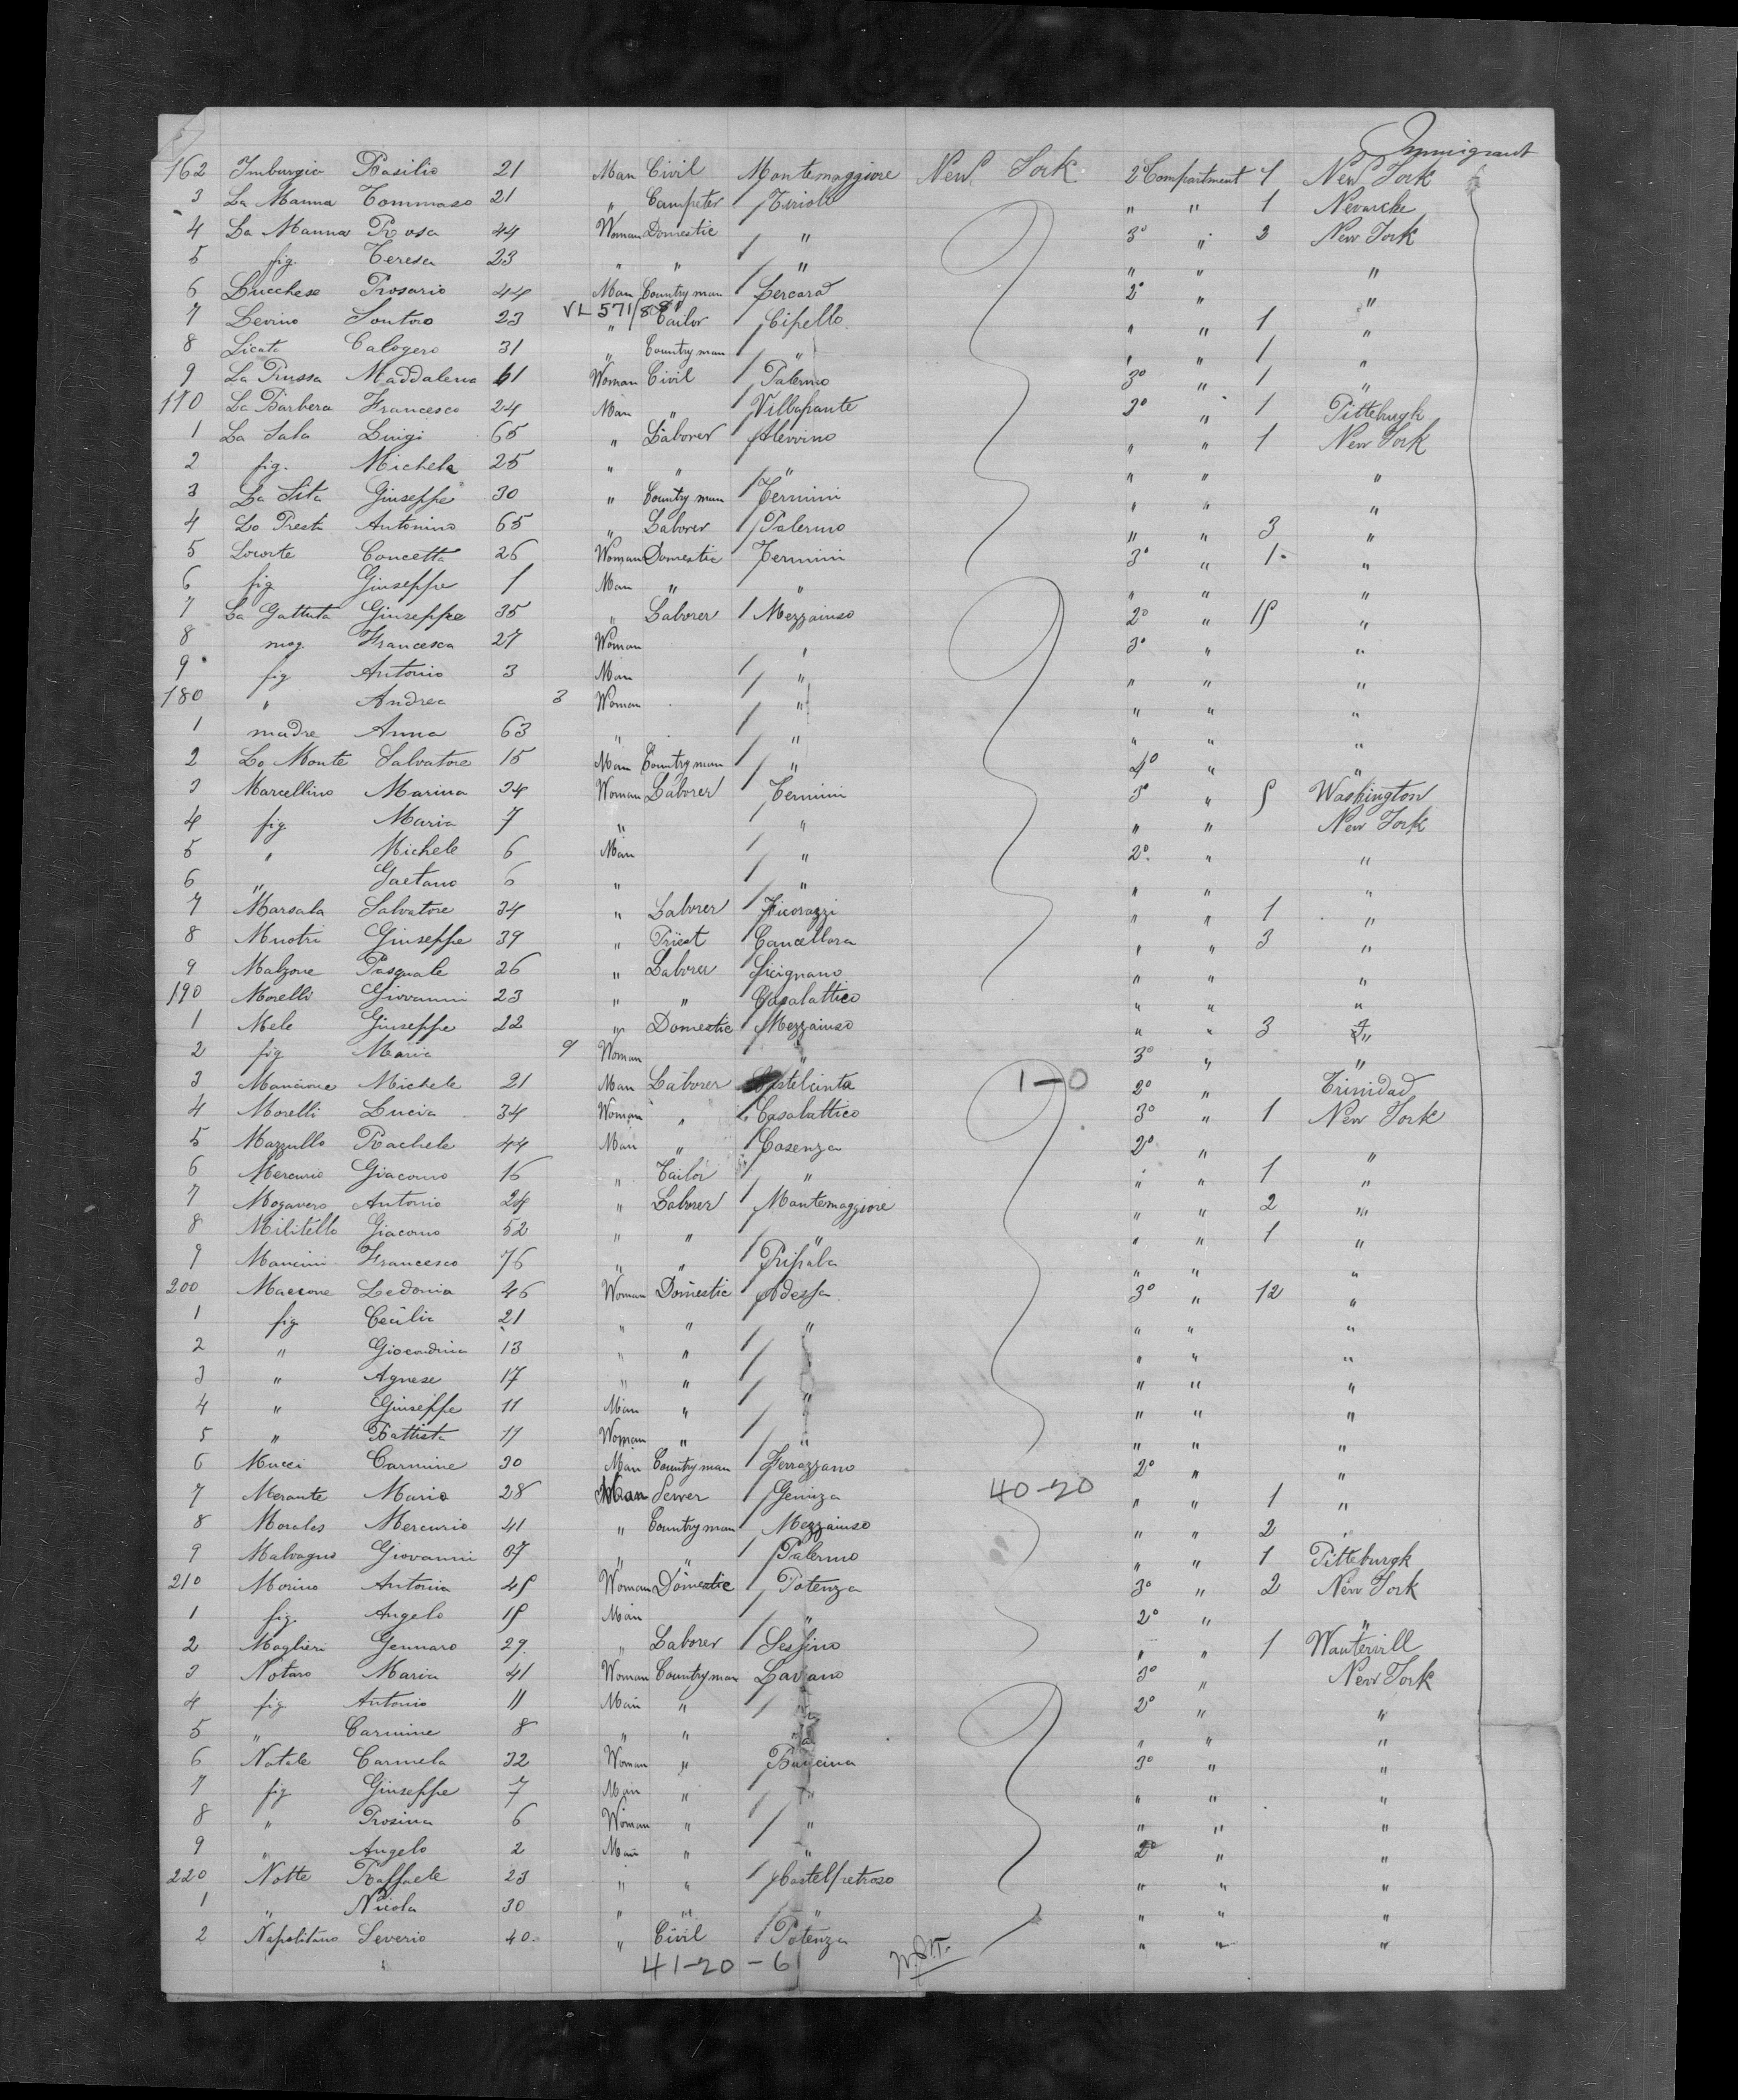 Immigrant
162 Imburgia Basilio 21 Man Civil Montemaggiore New York 2 Compartment 1 New York
3 La Manna Tommaso 21 " Carpeter Tiriolo " " 1 Nevarche
4 La Manna Rosa 44 Woman Domestic " 3° " 2 New York
5 fig. Teresa 23 " " " " " "
6 Lucchese Rosario 44 Man Country man Lercara 2° " "
VL 571/881
7 Levino Santoro 23 " Tailor Cipello " " 1 "
8 Licata Calogero 31 " Country man " " " 1 "
9 La Russa Maddalena 61 Woman Civil Palermo 3° " 1 "
170 La Barbera Francesco 24 Man " Villafrante 2° " 1 Pitteburgh
1 La Sala Luigi 65 " Laborer Alevvino " " 1 New York
2 fig. Michele 25 " " " " " "
3 La Sita Giuseppe 30 " Country man Termini " " "
4 Lo Presti Antonino 65 " Laborer Palermo " " 3 "
5 Locorte Concetta 26 Woman Domestic Termini 3° " 1 "
6 fig Giuseppe 1 Man " " " " "
7 La Gattuta Giuseppe 35 " Laborer Mezzaiuso 2° " 15 "
8 mog. Francesca 27 Woman " 3° " "
9 fig Antonio 3 Man " " " "
180 " Andrea 3 Woman " " " "
1 madre Anna 63 " " " " "
2 Lo Monte Salvatore 15 Man Country man " 2° " "
3 Marcellino Marina 34 Woman Laborer Termini 3° " 5 Washington
4 fig. Maria 7 " " " " New York
5 " Michele 6 Man " 2° " "
6 " Gaetano 6 " " " " "
7 Marsala Salvatore 34 " Laborer Ficorazzi " " 1 "
8 Muotri Giuseppe 39 " Priest Cancellara " " 3 "
9 Malzone Pasquale 26 " Laborer Sicignano " " "
190 Morelli Giovanni 23 " " Casalattico " " "
1 Mele Giuseppe 22 " Domestic Mezzaiuso " " 3 "
2 fig Maria 9 Woman " 3° " "
3 Mancione Michele 21 Man Laborer Castelcinta 1-0 2° " Trinidad
4 Morelli Lucia 34 Woman " Casalattico 3° " 1 New York
5 Mazzullo Rachele 44 Man " Cosenza 2° " "
6 Mercurio Giacomo 16 " Tailor " " " 1 "
7 Mogavero Antonio 24 " Laborer Montemaggiore " " 2 "
8 Militello Giacomo 52 " " " " " 1 "
9 Mancini Francesco 76 " " Ripaba " " "
200 Maccone Ledonia 46 Woman Domestic Adessa 3° " 12 "
1 fig Cecilia 21 " " " " " "
2 " Giocondina 13 " " " " " "
3 " Agnese 17 " " " " " "
4 " Giuseppe 11 Man " " " " "
5 " Battista 11 Woman " " " " "
6 Mucci Carmine 30 Man Country man Ferrazzano 2° " "
7 Merante Mario 28 Man Sewer Geniza 40-20 " " 1 "
8 Morales Mercurio 41 " Country man Mezzaiuso " " 2 "
9 Malvagno Giovanni 37 " " Palermo " " 1 Pitteburgk
210 Morino Antonia 45 Woman Domestic Potenza 3° " 2 New York
1 fig. Angelo 15 Man " 2° " "
2 Maglieri Gennaro 29 " Laborer Sessino " " 1 Wautervill
3 Notaro Maria 41 Woman Country man Laviano 3° " New York
4 fig. Antonio 11 Man " " 2° " "
5 " Carmine 8 " " " " " "
6 Natale Carmela 32 Woman " Baucina 3° " "
7 fig Giuseppe 7 Man " " " " "
8 " Rosina 6 Woman " " " " "
9 " Angelo 2 Man " " 2° " "
220 Notte Raffaele 23 " " Castelpetroso " " "
1 " Nicola 30 " " " " " "
2 Napolitano Severio 40 " Civil Potenza " " "
41-20-61